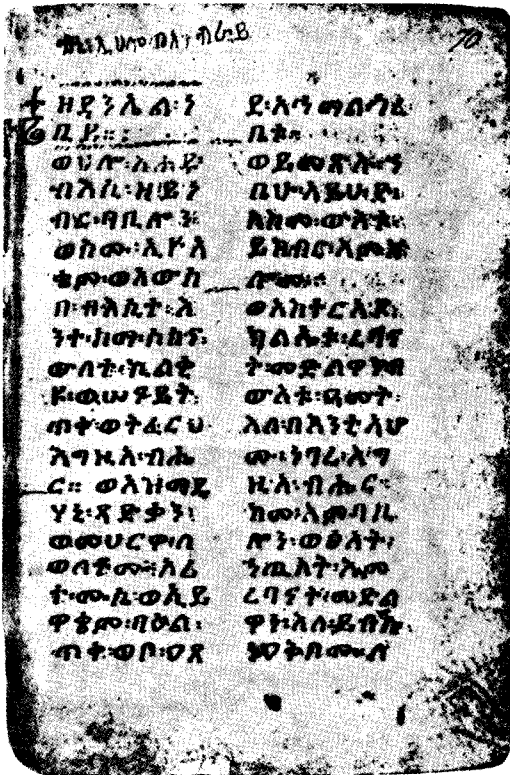 ዘዳንኤል፡ነ
ቢይ።
ወሀሎ፡አሐዱ
ብእሲ፡ዘይነ
ብር፡ባቢሎን፡
ወስሙ፡ኢዮአ
ቄም፡ወአውስ
በ፡ብእሲተ፡እ
ንተ፡ስሙ፡ሶስና፡
ወለተ፡ኬልቂ
ዩ፡ወሠናይት፡
ጥቀ፡ወትፈርህ
እግዚአብሔ
ር። ወአዝማዲ
ሃኒ፡ጻድቃን፡
ወመሀርዋ፡ለ
ወለቶሙ፡ኦሪ
ተ፡ሙሴ፡ወኢዮ
ዋቄም፡ባዕል፡
ጥቀ፡ወቦ፡ዐጸ
70
ደ፡
ቤቱ።
ወይመጽኡ፡ኀ
ቤሁ፡አይሁድ፡
እስመ፡ውእቱ፡
ይከብር፡እምኵ
ሎሙ።
ወአስተርአዩ፡
ክልኤቱ፡ረባና
ት፡መድልዋን፡በ
ውእቱ፡ዓመት፡
እለ፡በእንቲአሆ
ሙ፡ነገረ፡እግ
ዚአብሔር፡
ከመ፡እምባቢ
ሎን፡ወፅአት፡
ኀጢአት፡እም
ረባናት፡መድል
ዋን፡እለ፡ይብሉ፡
ንዕቅቦሙ፡ለ